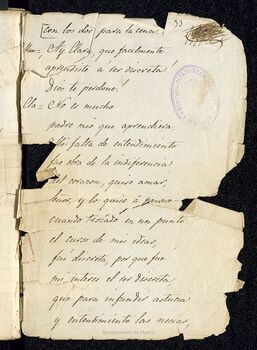 con los dos para la cena.
33
Ay Clara, que facilmente
aprendiste á ser discreta!
Dios te perdone!
Cla= No es mucho
padre mio que aprendiera
Mi falta de entendimiento
fue obra de la indiferencia
del corazon, quise amar,
señor, y lo quise
cuando trocado en un punto
el curso de mis ideas,
fui discreta, por que fue
mi interes el ser discreta,
que para infundir astucia
y entendimiento las necias,
Ayuntamiento de Madrid